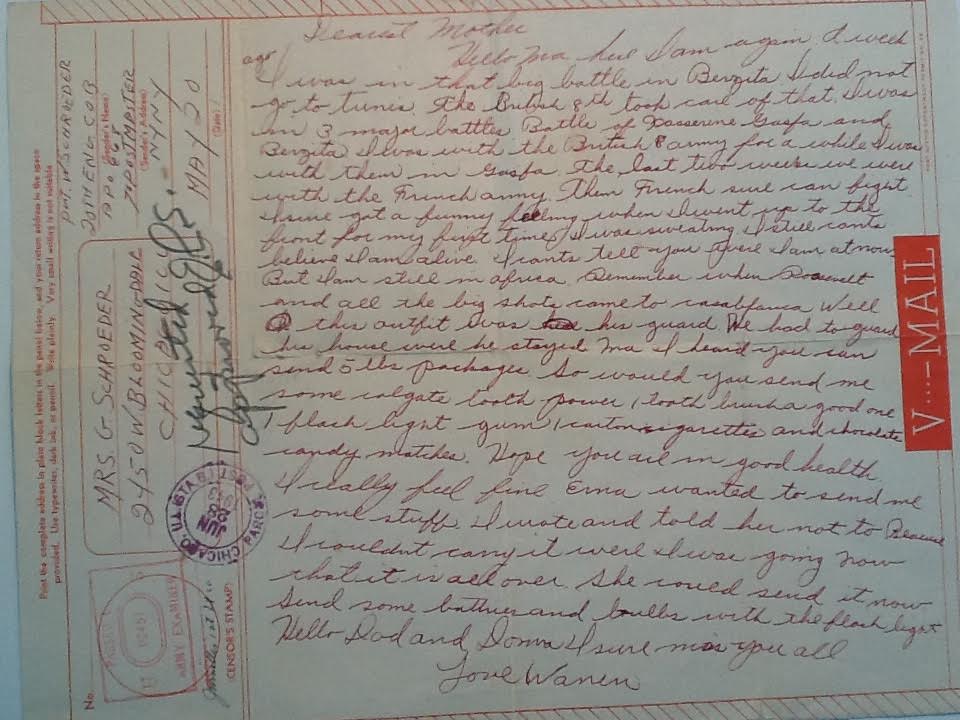 Dearest Mother
Hello Ma here I am again A week
ago
I was in that big battle in Berzita I did not
go to tunis. The British 8th took care of that. I was
in 3 major battles Battle of Kasserine Gasfa and
Berzita I was with the British 8 army for a while I was
with them in Gasfa. The last two weeks we were
with the French army. Them French sure can fight
I sure got a funny feeling when I went up to the
front for my first time, I was sweating I still cants
believe I am alive I cants tell you were I am at now
But I am still in africa. Remember when Roosevelt
and all the big shots came to casablanca Well
this outfit I was his guard We had to guard
his house were he stayed Ma I heard you can
send 5 lbs packages. So would you send me
some colgate tooth power 1 tooth brush a good one
1 flash light gum 1 carton cigarettes and chocolate
candy matches. Hope you are in good health.
I really feel fine Erna wanted to send me
some stuff I wrote and told her not to Because
I couldnt carry it were I was going now
that it is all over. She could send it now
Send some batteries and bulbs with the flash light
Hello Dad and I sure miss you all
Love Warren
V···—MAIL
Print the complete address in plain block letters in the panel below, and your return address in the space
provided. Use typewriter, dark ink, or pencil. Write plainly. Very small writing is not suitable
No.
MRS. G. SCHROEDER
2450 W. BLOOMINGDALE
CHICAGO
ILL
PVT. W SCHROEDER
20TH ENG. CO B
(Sender's Name)
APO 668
% POSTMASTER
(Sender's Address)
N.Y. N.Y
MAY 20
(Date)
Requested
Approved
PASSED BY
ARMY EXAMINER
CENSOR'S STAMP
CHICAGO, ILL.
PARCEL POST
JUN